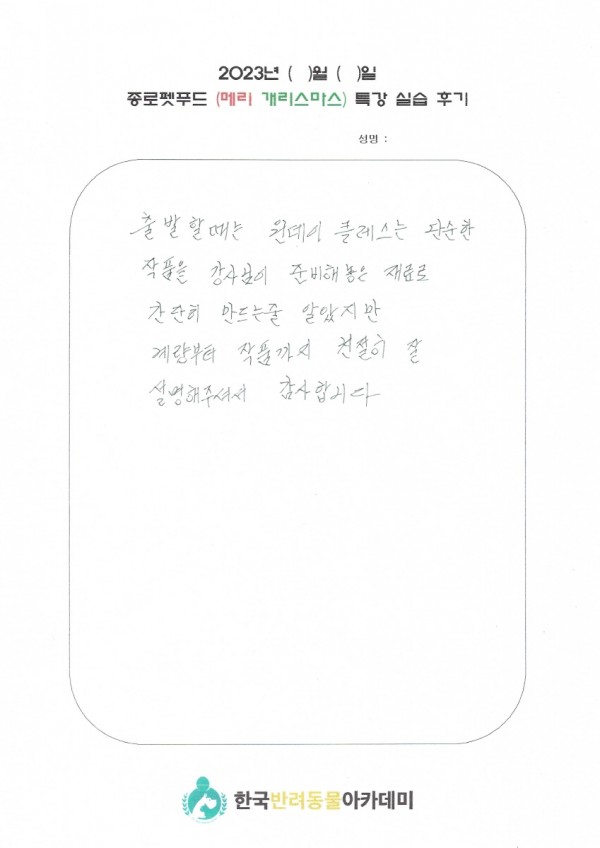 2023년 (  )월 (  )일
종로펫푸드 (메리 개리스마스) 특강 실습 후기
성명 :
출발할때는 원데이 클레스는 단순한
작품을 강사님이 준비해놓은 재료로
간단히 만드는줄 알았지만
계량부터 작품까지 친절히 잘
설명해주셔서 감사합니다
한국반려동물아카데미